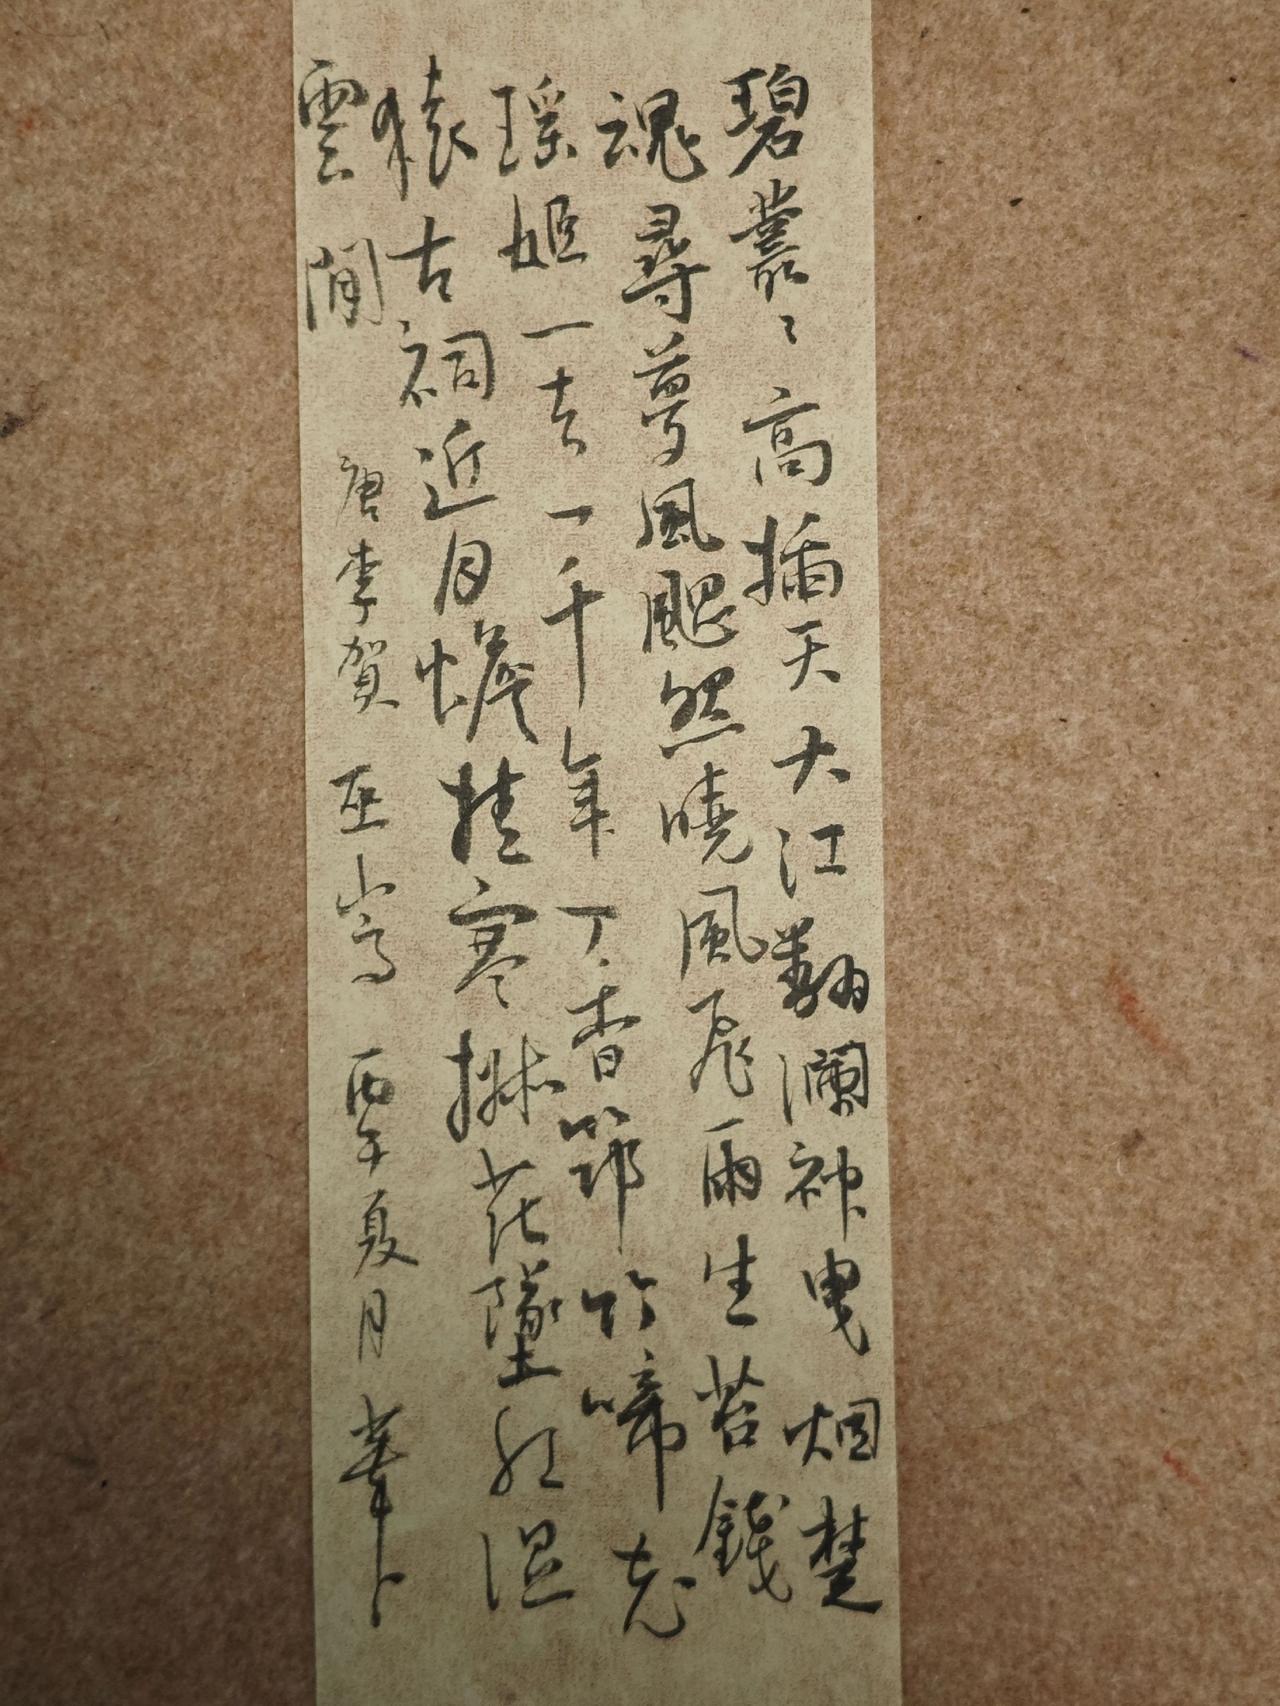 碧叢〻高插天大江翻瀾神曳烟楚
魂尋夢風颸然曉風飛雨生苔錢
瑶姬一去一千年丁香筇竹啼老
猿古祠近月蟾桂寒椒花墜紅濕
雲間
唐李賀巫山高 丙午夏月